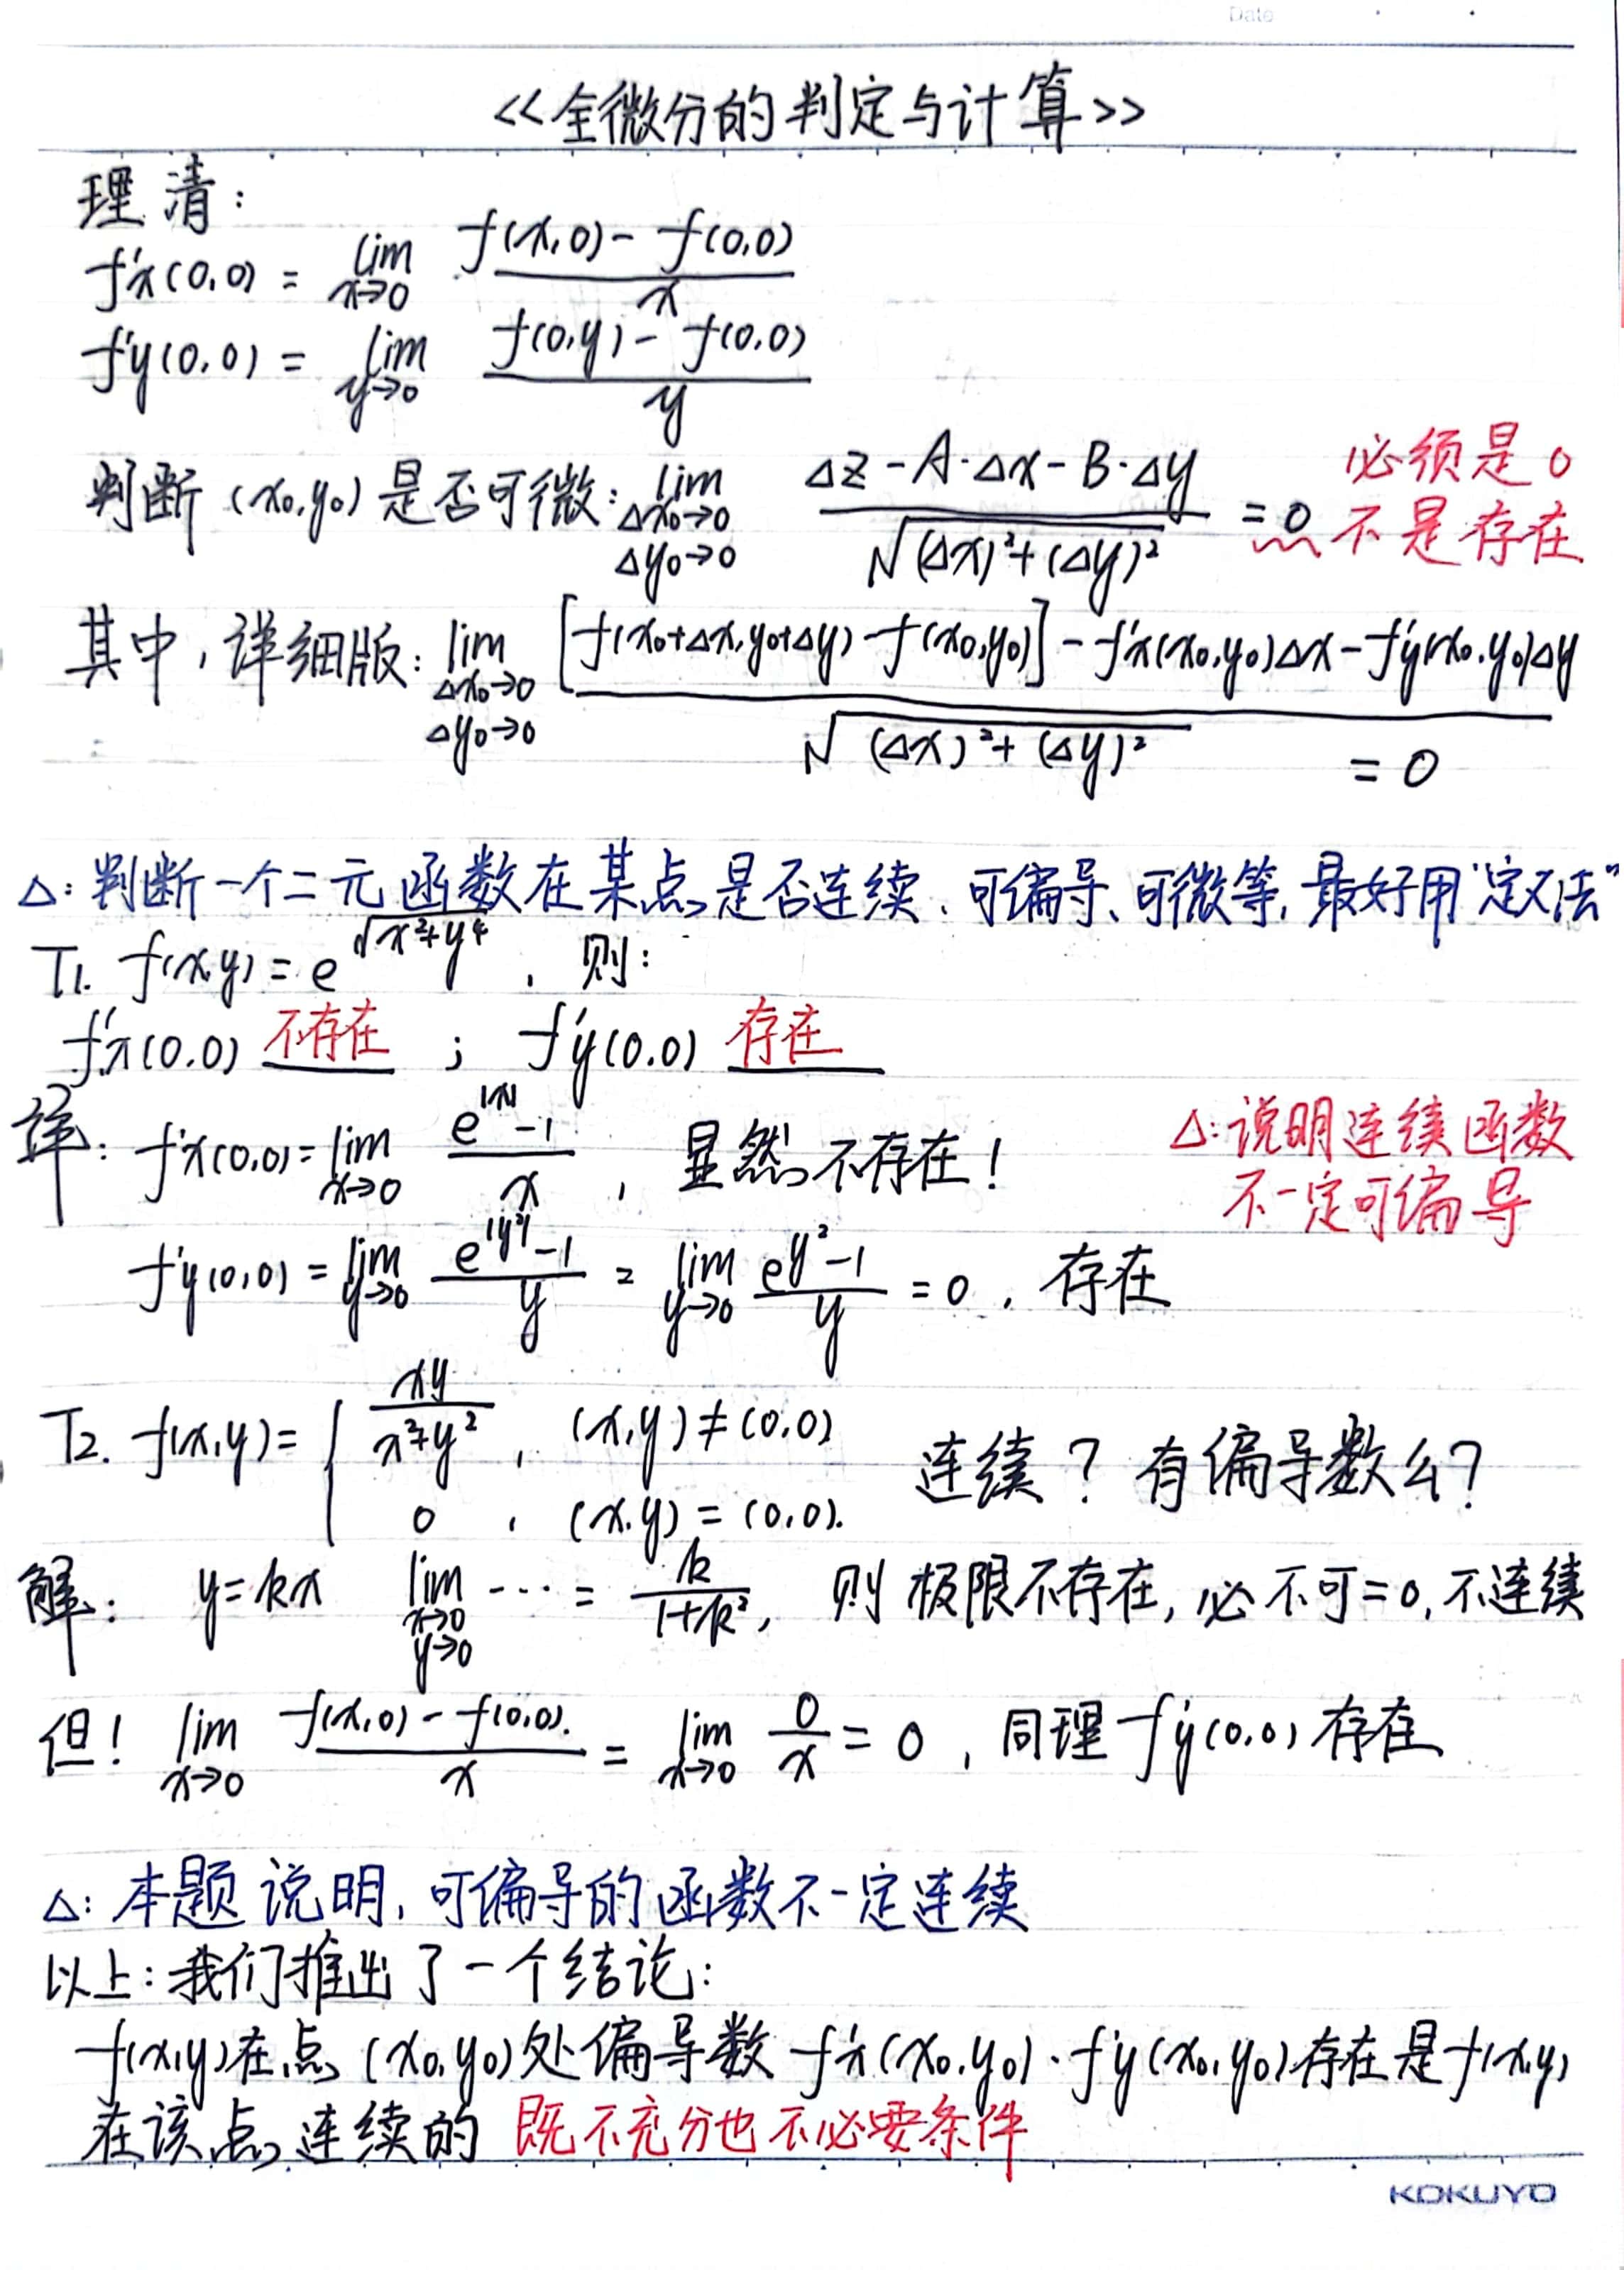 Date
<<全微分的判定与计算>>
理清:
f'x(0,0) = lim x→0 (f(x,0) - f(0,0))/x
f'y(0,0) = lim y→0 (f(0,y) - f(0,0))/y
判断(x₀,y₀)是否可微: lim Δx₀→0 Δy₀→0 (Δz - A·Δx - B·Δy)/√((Δx)²+(Δy)²) = 0 必须是0
不是存在
其中,详细版: lim Δx₀→0 Δy₀→0 ([f(x₀+Δx,y₀+Δy) - f(x₀,y₀)] - f'x(x₀,y₀)Δx - f'y(x₀,y₀)Δy)/√((Δx)²+(Δy)²) = 0
△: 判断一个二元函数在某点是否连续、可偏导、可微等, 最好用"定义法"
T1. f(x,y) = e^√(x²+y⁴) , 则:
f'x(0,0) 不存在 ; f'y(0,0) 存在
详: f'x(0,0) = lim x→0 (e^|x| - 1)/x , 显然不存在!
△: 说明连续函数
不一定可偏导
f'y(0,0) = lim y→0 (e^|y²| - 1)/y = lim y→0 (e^y² - 1)/y = 0 , 存在
T2. f(x,y) = { xy/(x²+y²) , (x,y) ≠ (0,0)
0 , (x,y) = (0,0).
连续? 有偏导数么?
解: y=kx lim x→0 y→0 ... = k/(1+k²), 则极限不存在, 必不可=0, 不连续
但! lim x→0 (f(x,0) - f(0,0))/x = lim x→0 0/x = 0 , 同理 f'y(0,0) 存在
△: 本题说明, 可偏导的函数不一定连续
以上: 我们推出了一个结论:
f(x,y)在点(x₀,y₀)处偏导数 f'x(x₀,y₀)、f'y(x₀,y₀)存在是f(x,y)
在该点连续的 既不充分也不必要条件
KOKUYO